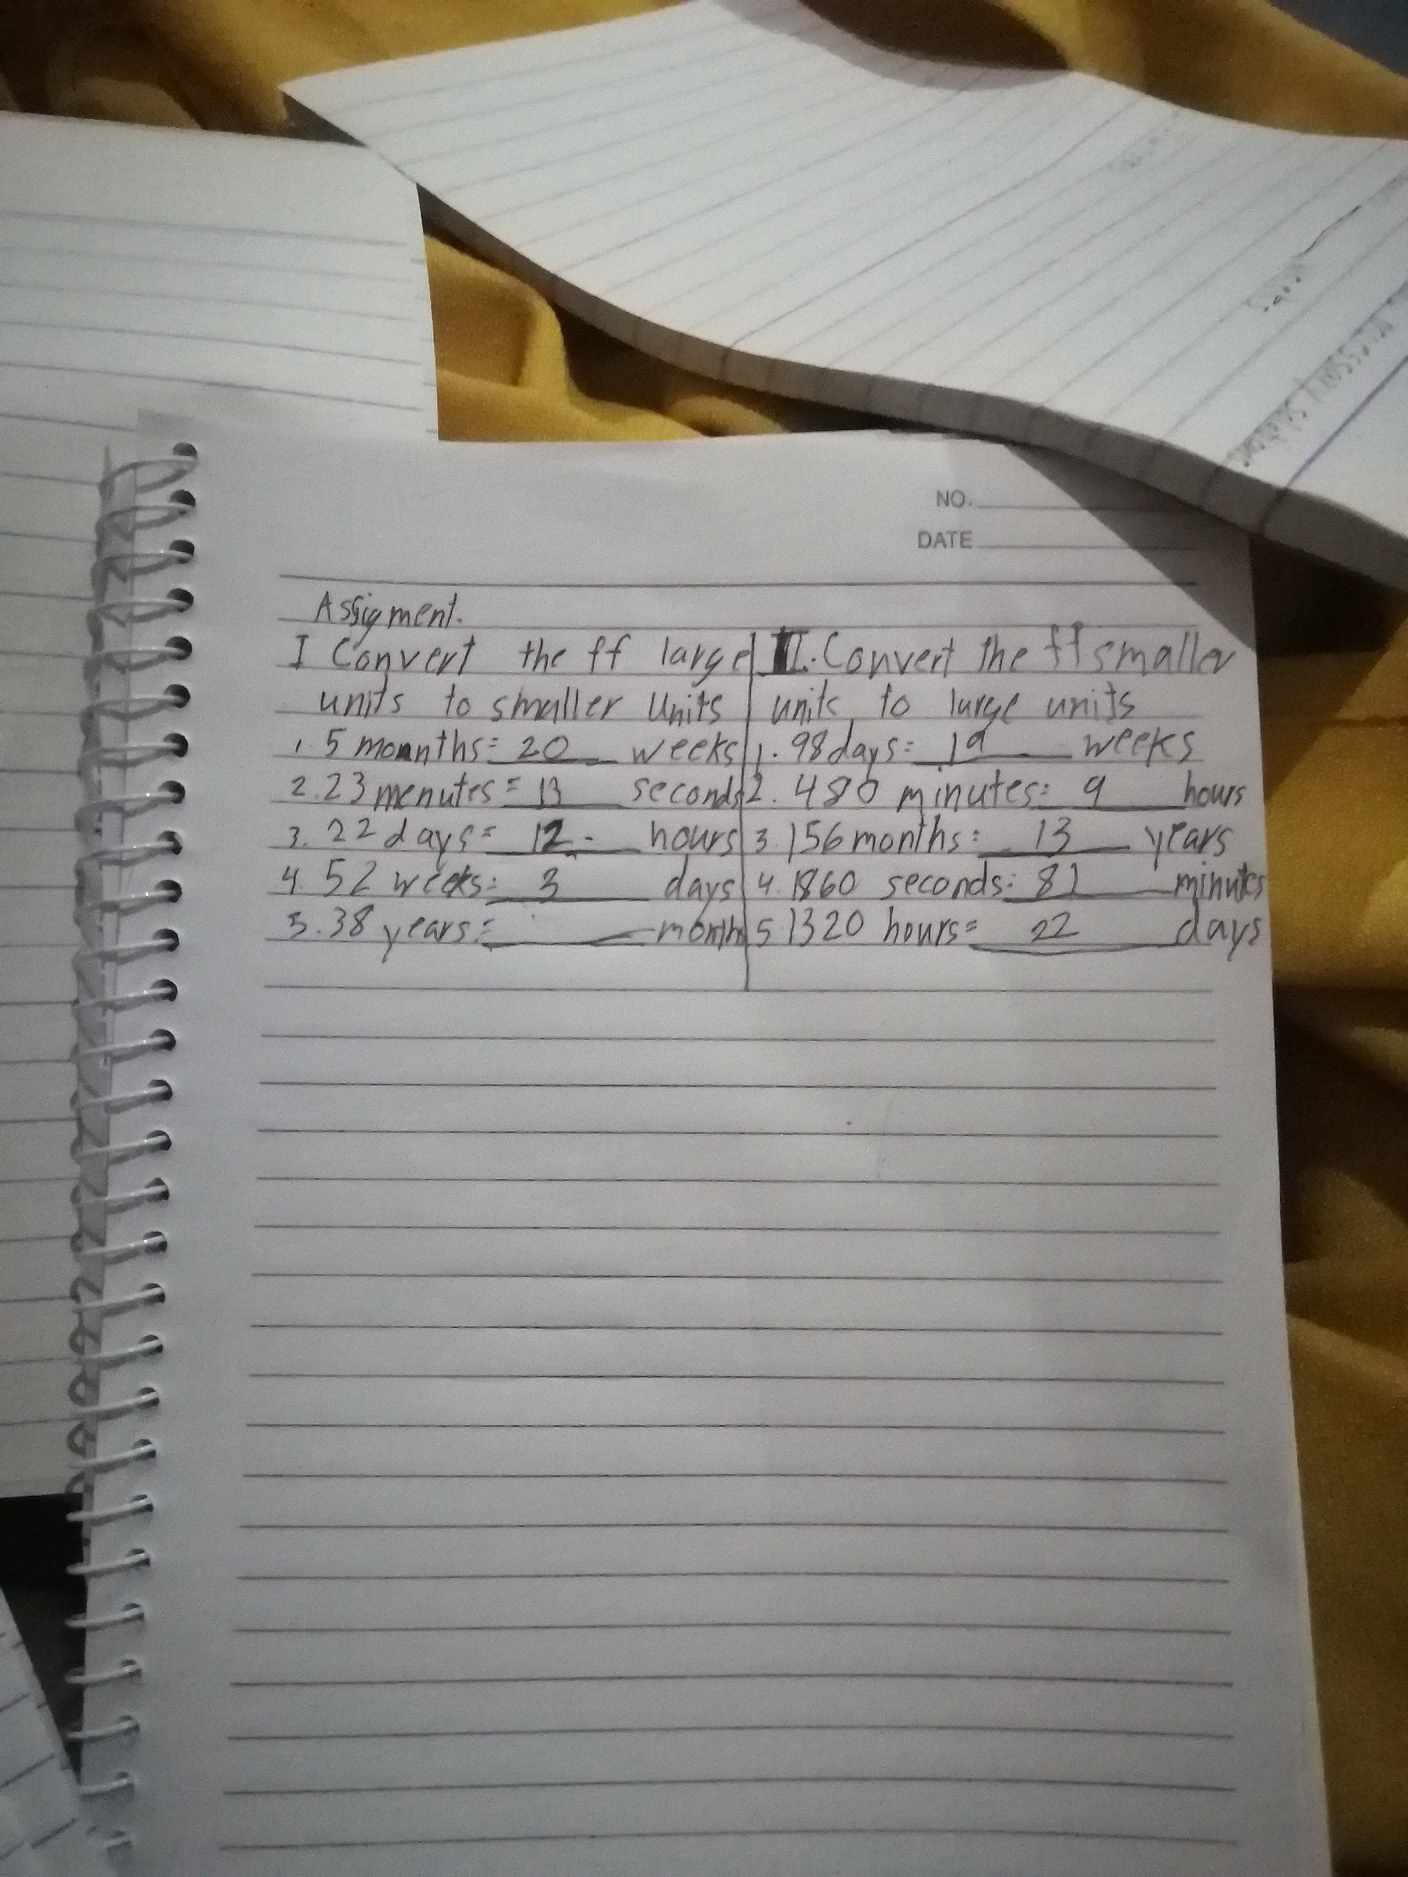 NO.
DATE
Assigment.
I Convert the ff large
units to smaller units
1. 5 monnths= 20 weeks
2. 23 menutes= 13 seconds
3. 22 days= 12 hours
4. 52 weeks= 3 days
5. 38 years= month
II. Convert the ff smaller
units to large units
1. 98 days= 19 weeks
2. 480 minutes= 9 hours
3. 156 months= 13 years
4. 1860 seconds= 81 minutes
5. 1320 hours= 22 days